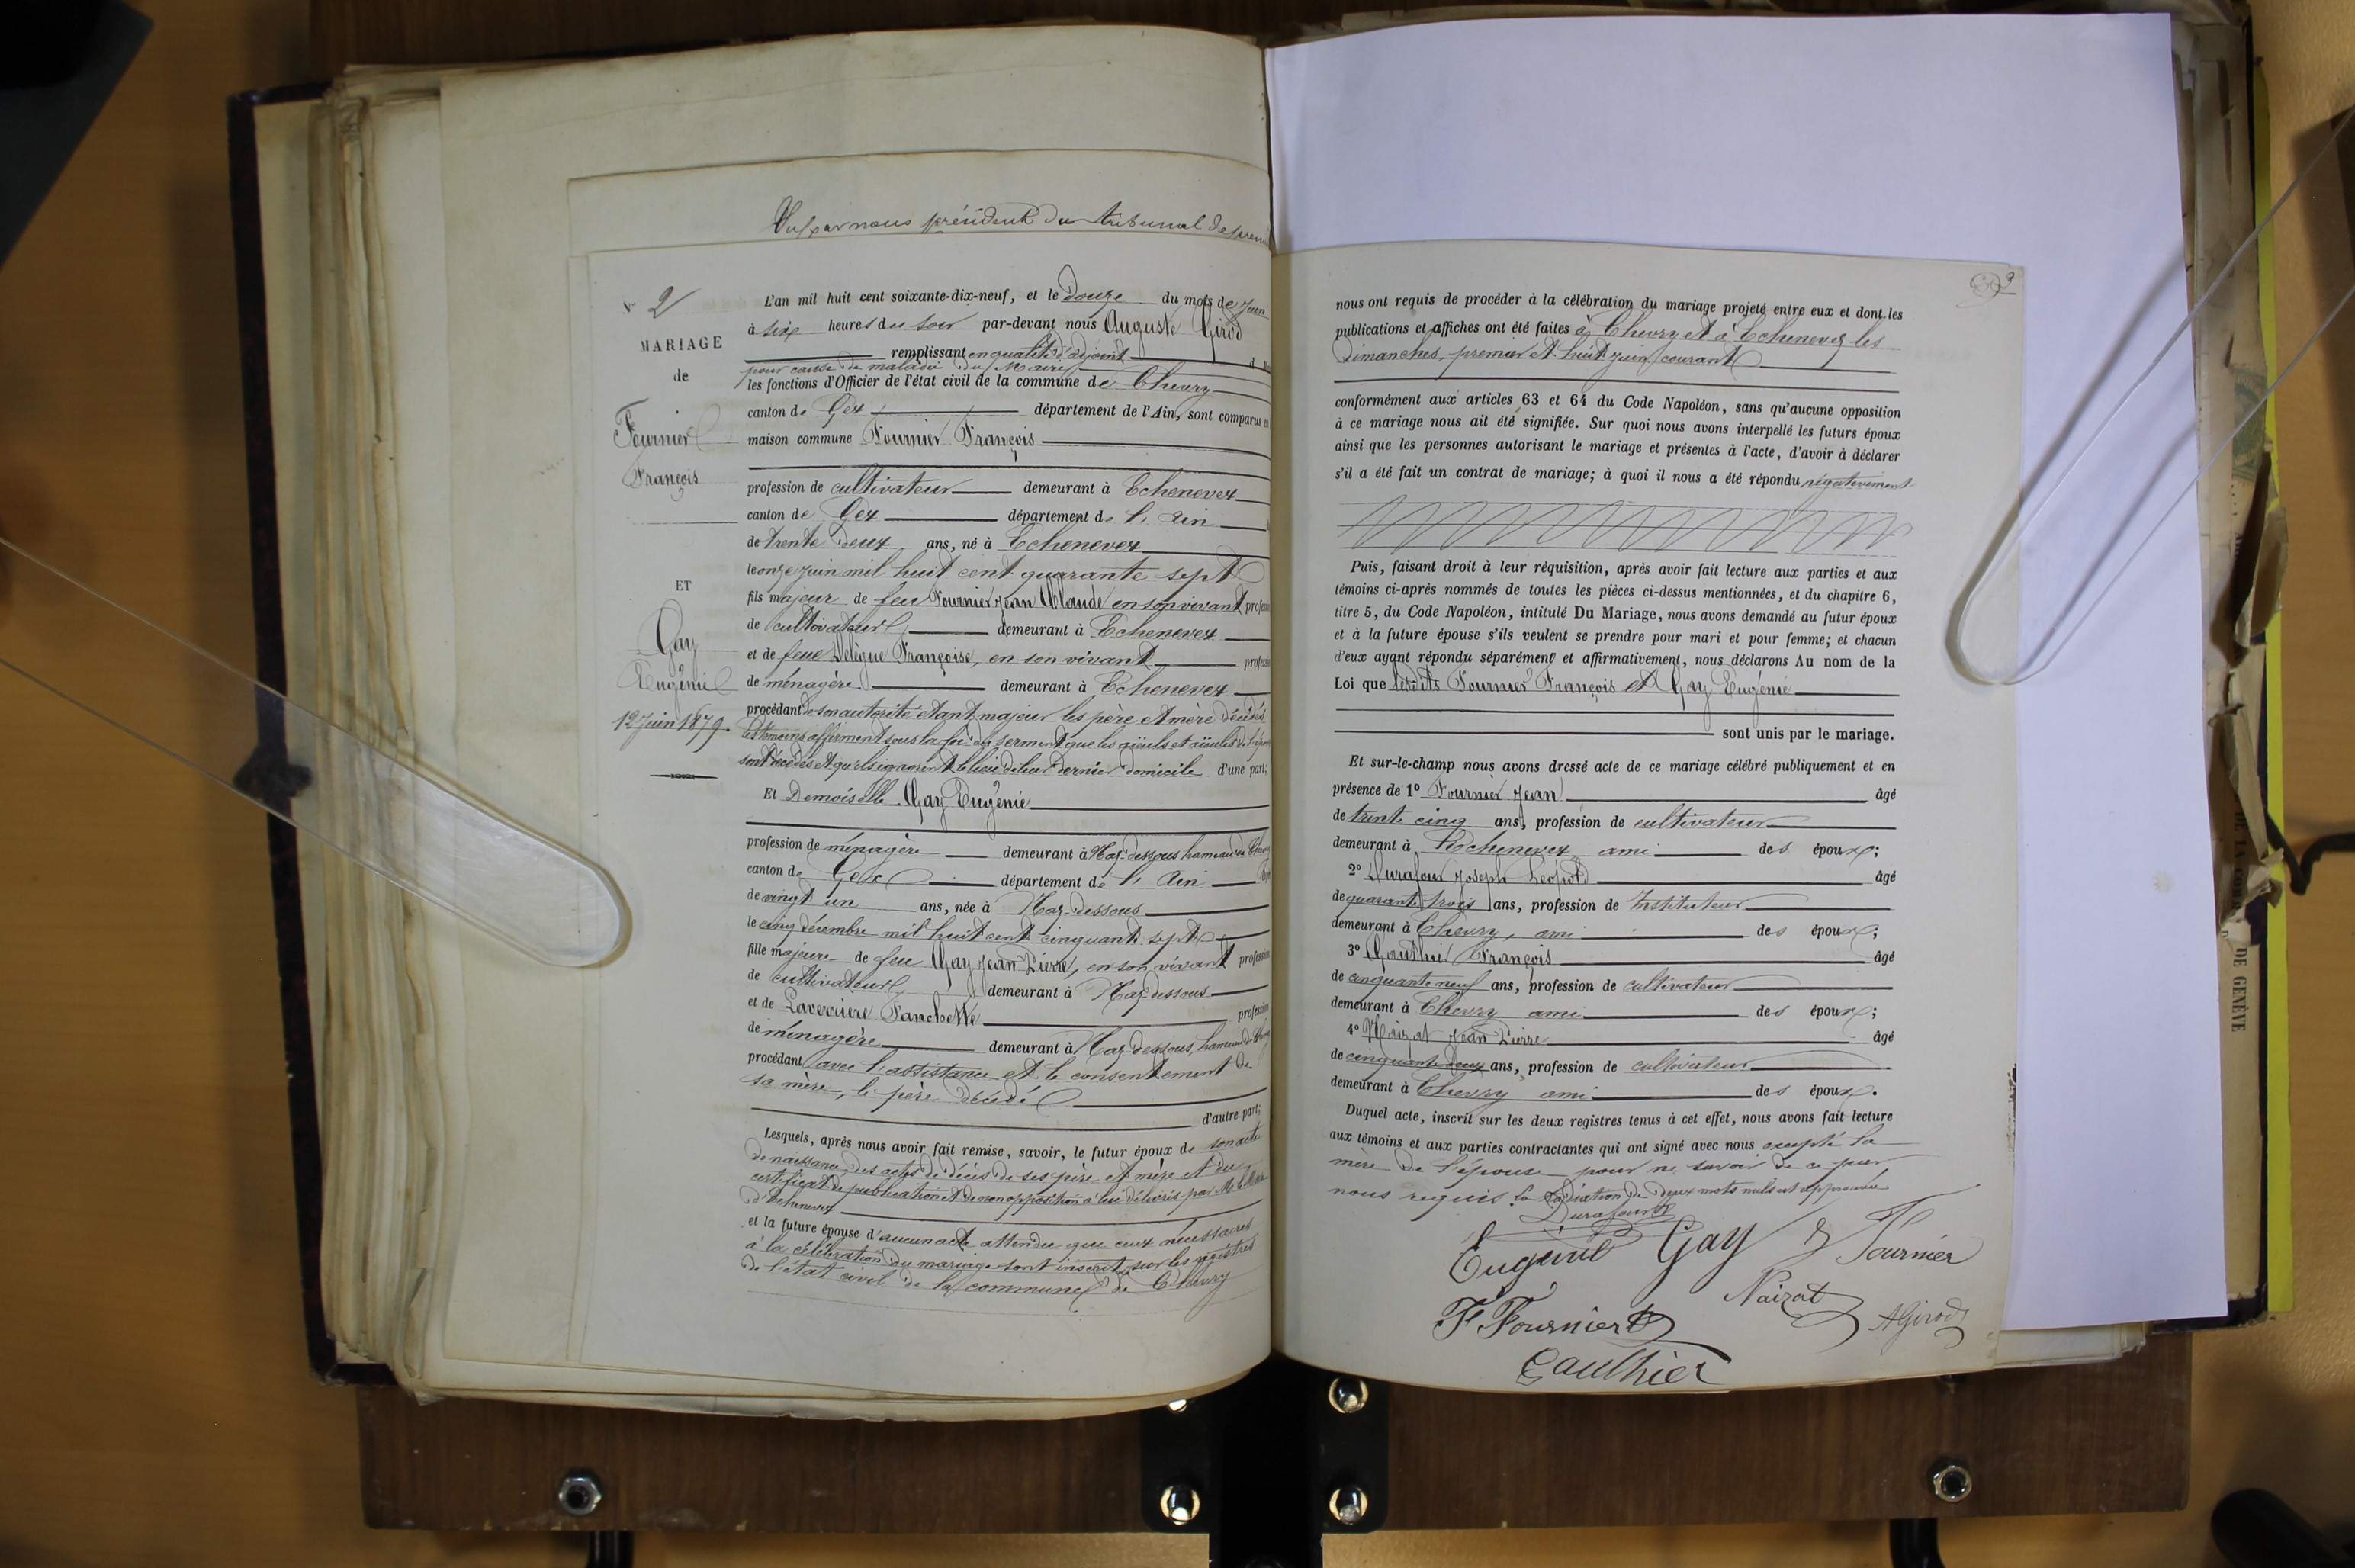 Vu par nous président du tribunal de prem
N° 2
MARIAGE
de
Fournier
François
ET
Gay
Eugénie
12 Juin 1879.
L'an mil huit cent soixante-dix-neuf, et le douze du mois de Juin
à six heures du soir par-devant nous Auguste Girod
remplissant en qualité d'adjoint
pour cause de maladie du Maire
les fonctions d'Officier de l'état civil de la commune de Chevry
canton de Gex département de l'Ain, sont comparus en
maison commune Fournier François
profession de cultivateur demeurant à Echenevex
canton de Gex département de l'Ain
de trente deux ans, né à Echenevex
le onze juin mil huit cent quarante sept
fils majeur de feu Fournier Jean Claude en son vivant profession
de cultivateur demeurant à Echenevex
et de feue Delègue Françoise, en son vivant profession
de ménagère demeurant à Echenevex
procédant de son autorité étant majeur les père et mère décédés
les témoins affirment sous la foi du serment que les aïeuls et aïeules de l'époux
sont décédés et qu'ils ignorent le lieu de leur dernier domicile d'une part;
Et Demoiselle Gay Eugénie
profession de ménagère demeurant à Naz-dessous hameau de Chevry
canton de Gex département de l'Ain âgée
de vingt un ans, née à Naz-dessous
le cinq décembre mil huit cent cinquante sept
fille majeure de feu Gay Jean Pierre, en son vivant profession
de cultivateur demeurant à Naz-dessous
et de Laverrière Fanchette profession
de ménagère demeurant à Naz-dessous, hameau de Chevry
procédant avec l'assistance et le consentement de
sa mère, le père décédé
d'autre part;
Lesquels, après nous avoir fait remise, savoir, le futur époux de son acte
de naissance, des actes de décès de ses père et mère et du
certificat de publication et de non opposition à lui délivrés par Mr le Maire
d'Echenevex
et la future épouse d'aucun acte attendu que ceux nécessaires
à la célébration du mariage sont inscrits sur les registres
de l'état civil de la commune de Chevry
nous ont requis de procéder à la célébration du mariage projeté entre eux et dont les
publications et affiches ont été faites à Chevry et à Echenevex les
dimanches, premier et huit juin courant
conformément aux articles 63 et 64 du Code Napoléon, sans qu'aucune opposition
à ce mariage nous ait été signifiée. Sur quoi nous avons interpellé les futurs époux
ainsi que les personnes autorisant le mariage et présentes à l'acte, d'avoir à déclarer
s'il a été fait un contrat de mariage; à quoi il nous a été répondu négativement
Puis, faisant droit à leur réquisition, après avoir fait lecture aux parties et aux
témoins ci-après nommés de toutes les pièces ci-dessus mentionnées, et du chapitre 6,
titre 5, du Code Napoléon, intitulé Du Mariage, nous avons demandé au futur époux
et à la future épouse s'ils veulent se prendre pour mari et pour femme; et chacun
d'eux ayant répondu séparément et affirmativement, nous déclarons Au nom de la
Loi que lesdits Fournier François et Gay Eugénie
sont unis par le mariage.
Et sur-le-champ nous avons dressé acte de ce mariage célébré publiquement et en
présence de 1° Fournier Jean âgé
de trente cinq ans, profession de cultivateur
demeurant à Echenevex ami des époux;
2° Durafour Joseph Léopold âgé
de quarante trois ans, profession de Instituteur
demeurant à Chevry, ami des époux;
3° Gauthier François âgé
de cinquante neuf ans, profession de cultivateur
demeurant à Chevry ami des époux;
4° Naizat Jean Pierre âgé
de cinquante deux ans, profession de cultivateur
demeurant à Chevry ami des époux.
Duquel acte, inscrit sur les deux registres tenus à cet effet, nous avons fait lecture
aux témoins et aux parties contractantes qui ont signé avec nous excepté la
mère de l'épouse pour ne savoir de ce par
nous requis. la radiation de deux mots nuls est approuvée
Durafour
Eugénie Gay Fournier
Naizat
F Fournier AGirod
Gauthier
DE GENÈVE